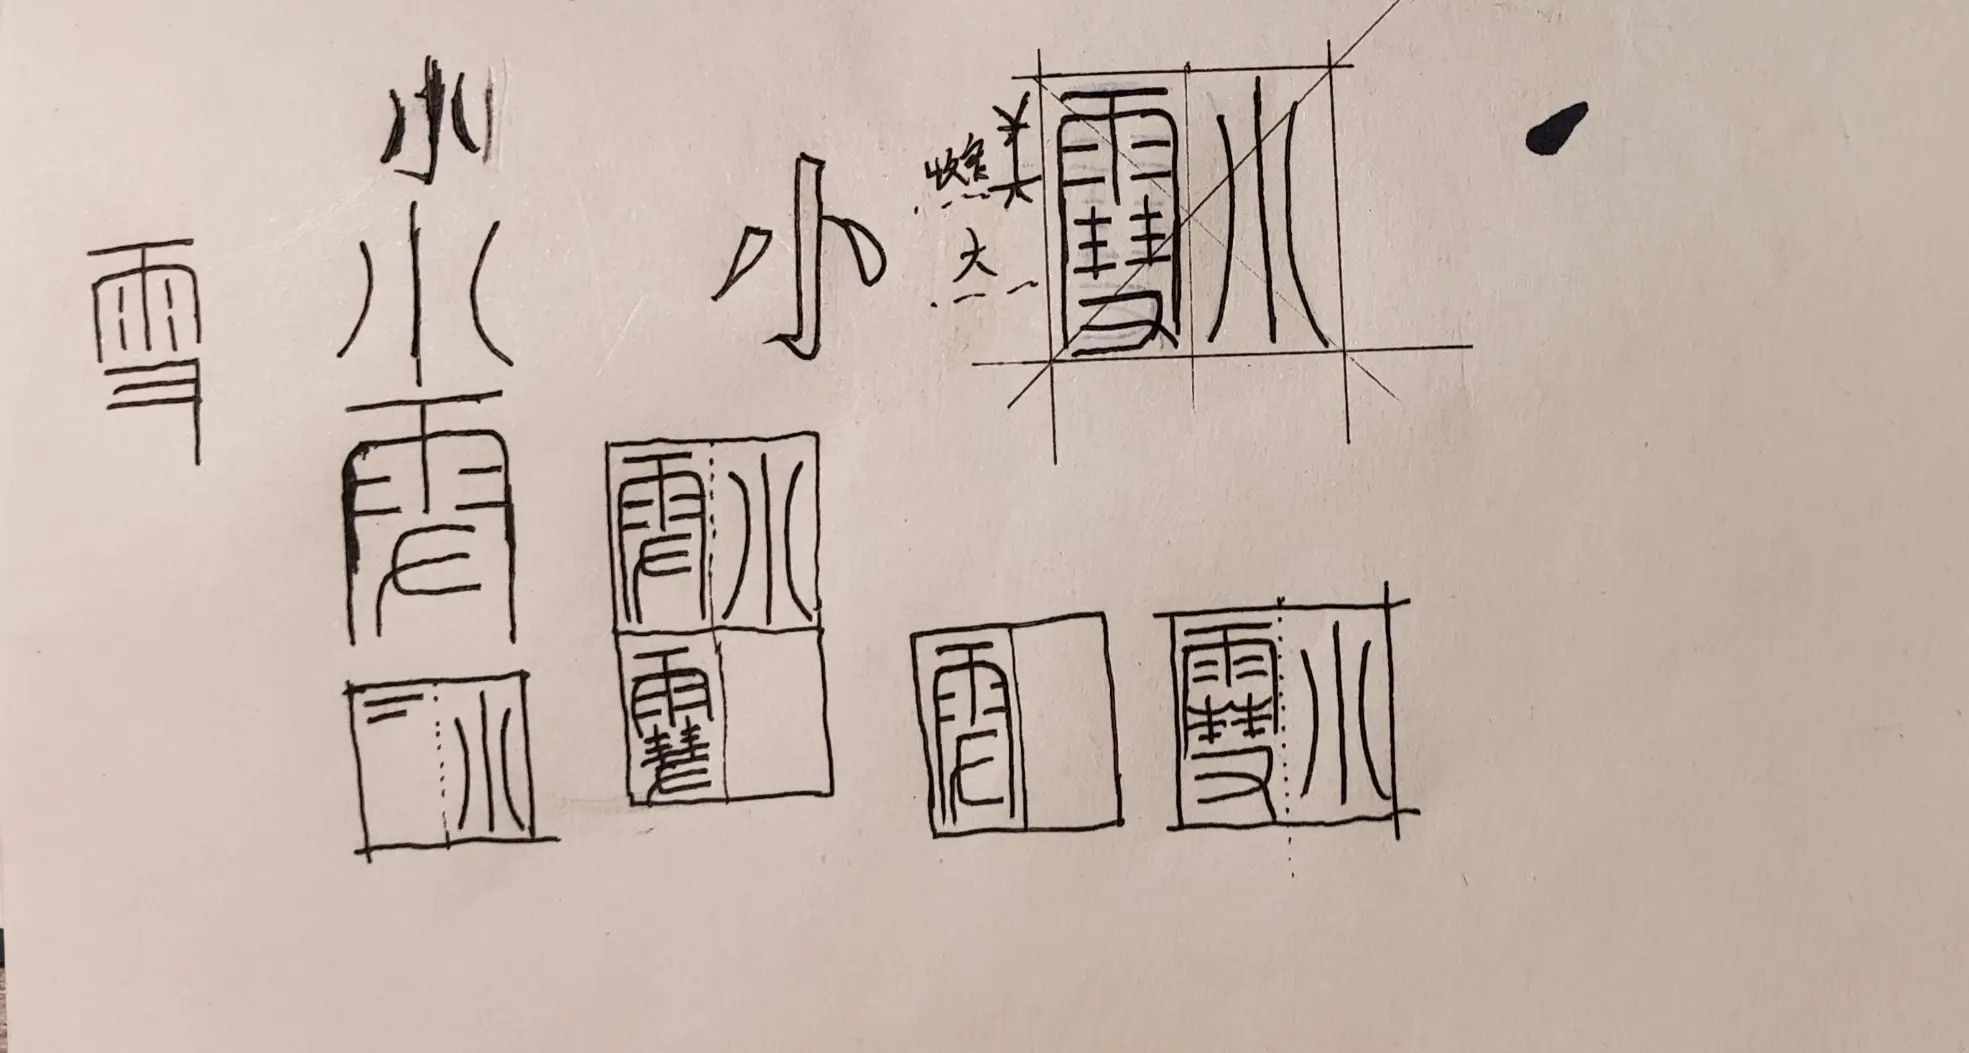 小
小雪
小
小
大
雪
雪
小雪
雪
小
雪
小雪